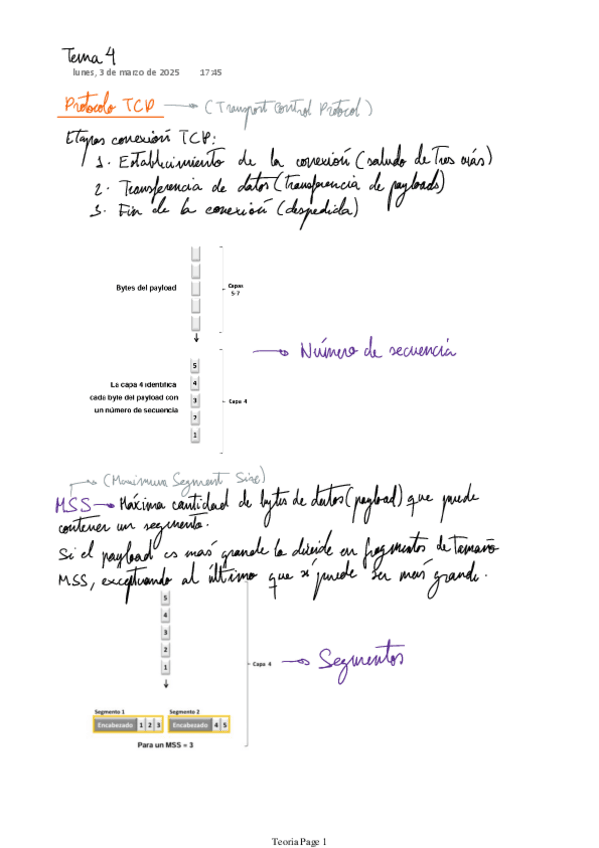 Tema 4
lunes, 3 de marzo de 2025 17:45
Protocolo TCP → (Transport Control Protocol)
Etapas conexión TCP:
1. Establecimiento de la conexión (saludo de tres vías)
2. Transferencia de datos (transferencia de payloads)
3. Fin de la conexión (despedida)
Bytes del payload
Capas
5-7
→ Número de secuencia
La capa 4 identifica
cada byte del payload con
un número de secuencia
5
4
3
2
1
Capa 4
→ (Maximum Segment Size)
MSS → Máxima cantidad de bytes de datos (payload) que puede
contener un segmento.
Si el payload es más grande lo divide en fragmentos de tamaño
MSS, exceptuando al último que sí puede ser más grande.
5
4
3
2
1
Capa 4 → Segmentos
Segmento 1 Segmento 2
Encabezado 1 2 3 Encabezado 4 5
Para un MSS = 3
Teoria Page 1